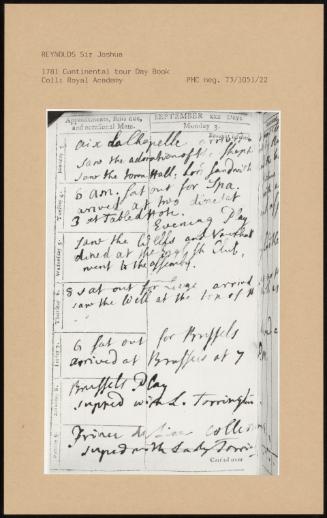 REYNOLDS Sir Joshua
1781 Continental tour Day Book
Coll: Royal Academy PHC neg. 73/1051/22
Appointments, Bills due,
and occasional Mem.
SEPTEMBER xxx Days
Monday 3.
aix la Chapelle
saw the adoration of the Shep
saw the town Hall; Lord Sandwich
6 am. sat out for Spa.
arrived at two dined at
3 at Table d Hote.
Evening Play
saw the Wells and Vauxhall
dined at the English Club,
went to the assembly.
8 sat out for Liege arrived
saw the Well at the
6 sat out for Brussels
arrived at Brussels at 7
Brussels Play
supped with L. Torrington
Prince
supped with Lady Torrin